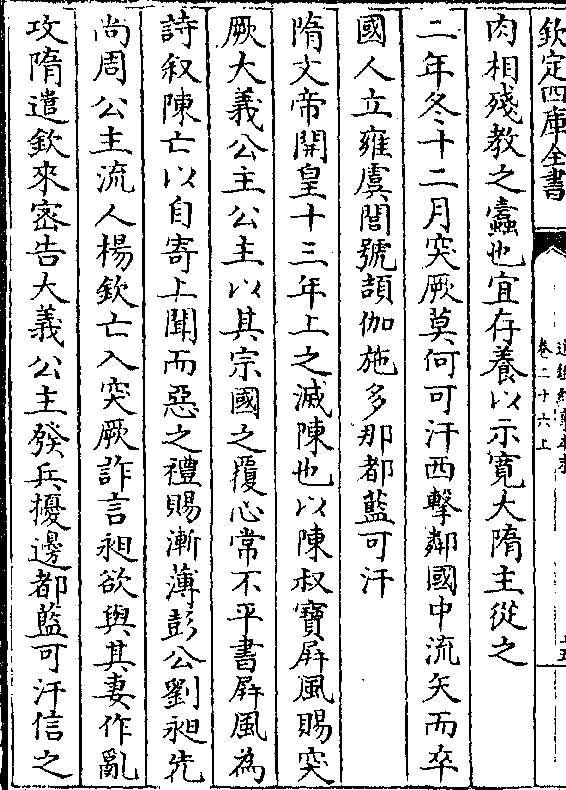 欽定四庫全書
卷二十六上
肉相殘教之蠹也宜存養以示寛大隋主從之
二年冬十二月突厥莫何可汗西擊鄰國中流矢而卒
國人立雍虞閭號頡伽施多那都藍可汗
隋文帝開皇十三年上之滅陳也以陳叔寶屏風賜突
厥大義公主公主以其宗國之覆心常不平書屏風為
詩叙陳亡以自寄上聞而惡之禮賜漸薄彭公劉昶先
尚周公主流人楊欽亡入突厥詐言昶欲與其妻作亂
攻隋遣欽來密告大義公主發兵擾邊都藍可汗信之